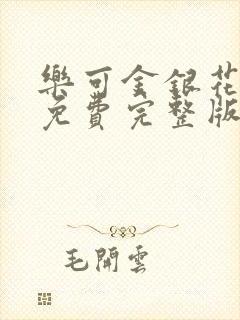 樂可金銀花
免費完整版
毛開雲